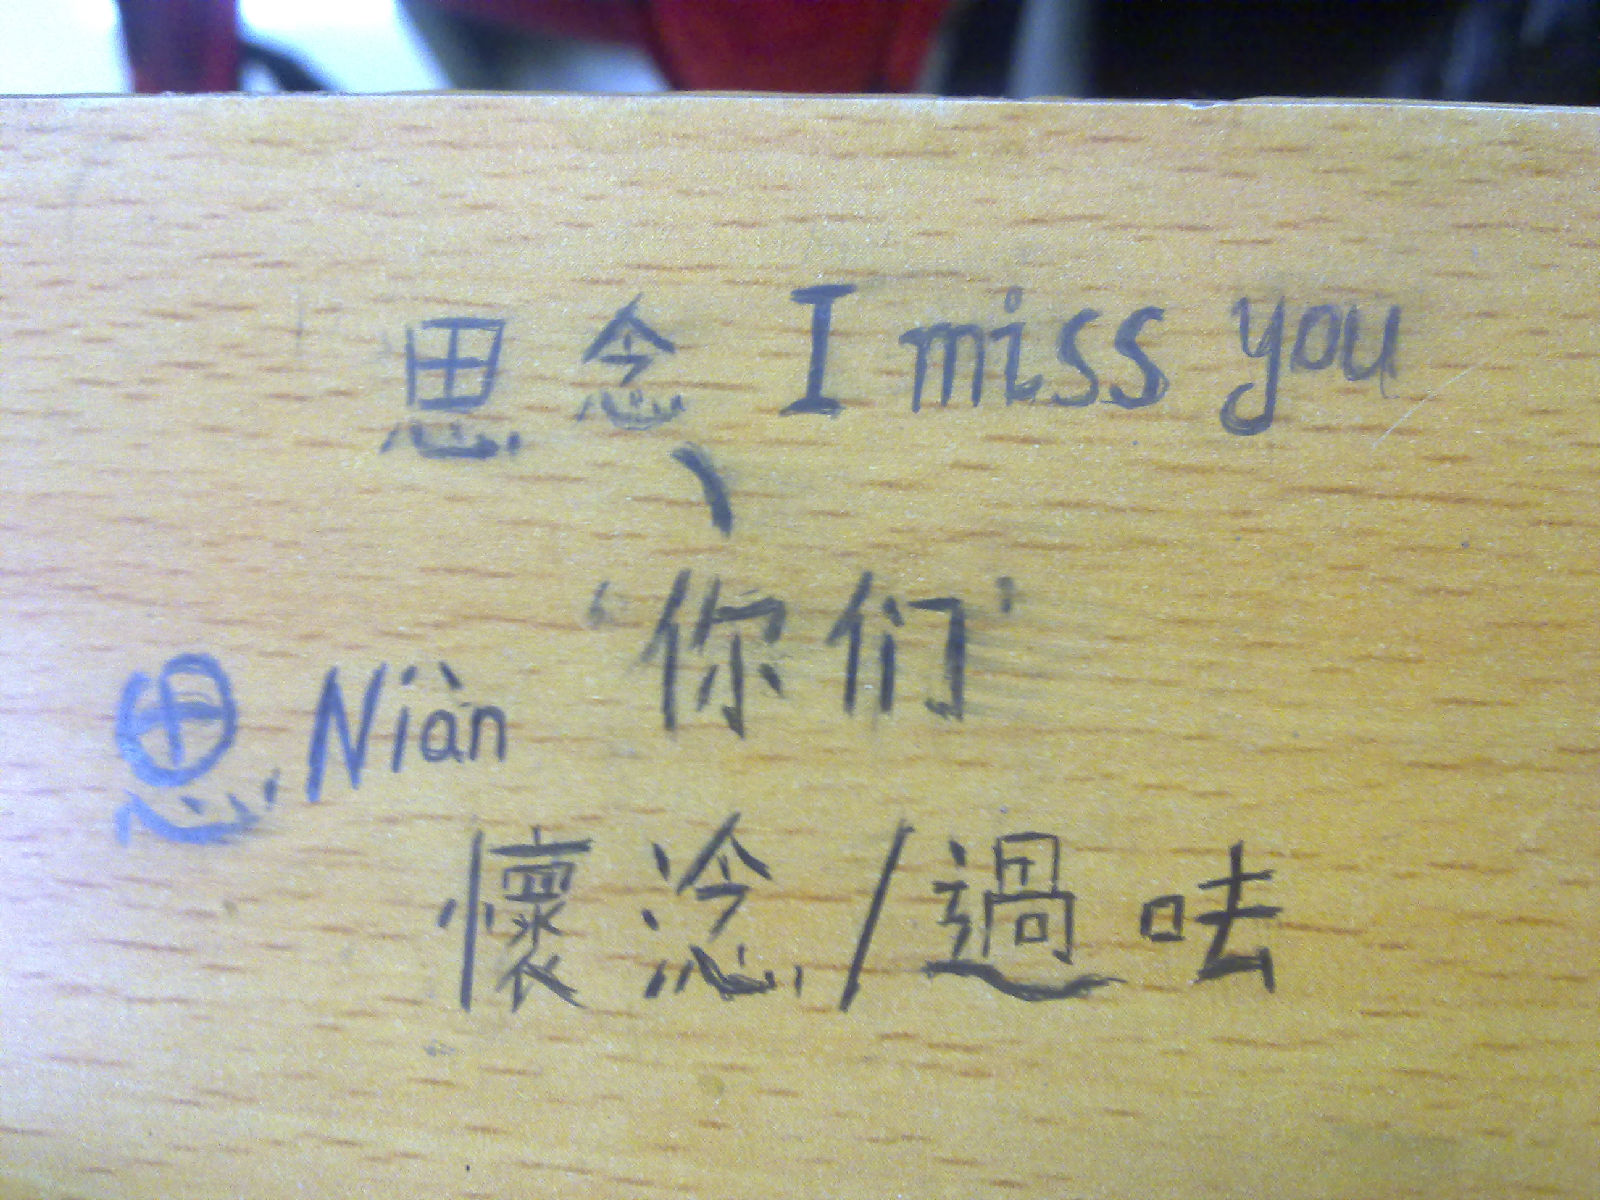 思念 I miss you
、
‘你们’
思 Niàn
懷淰/過呿